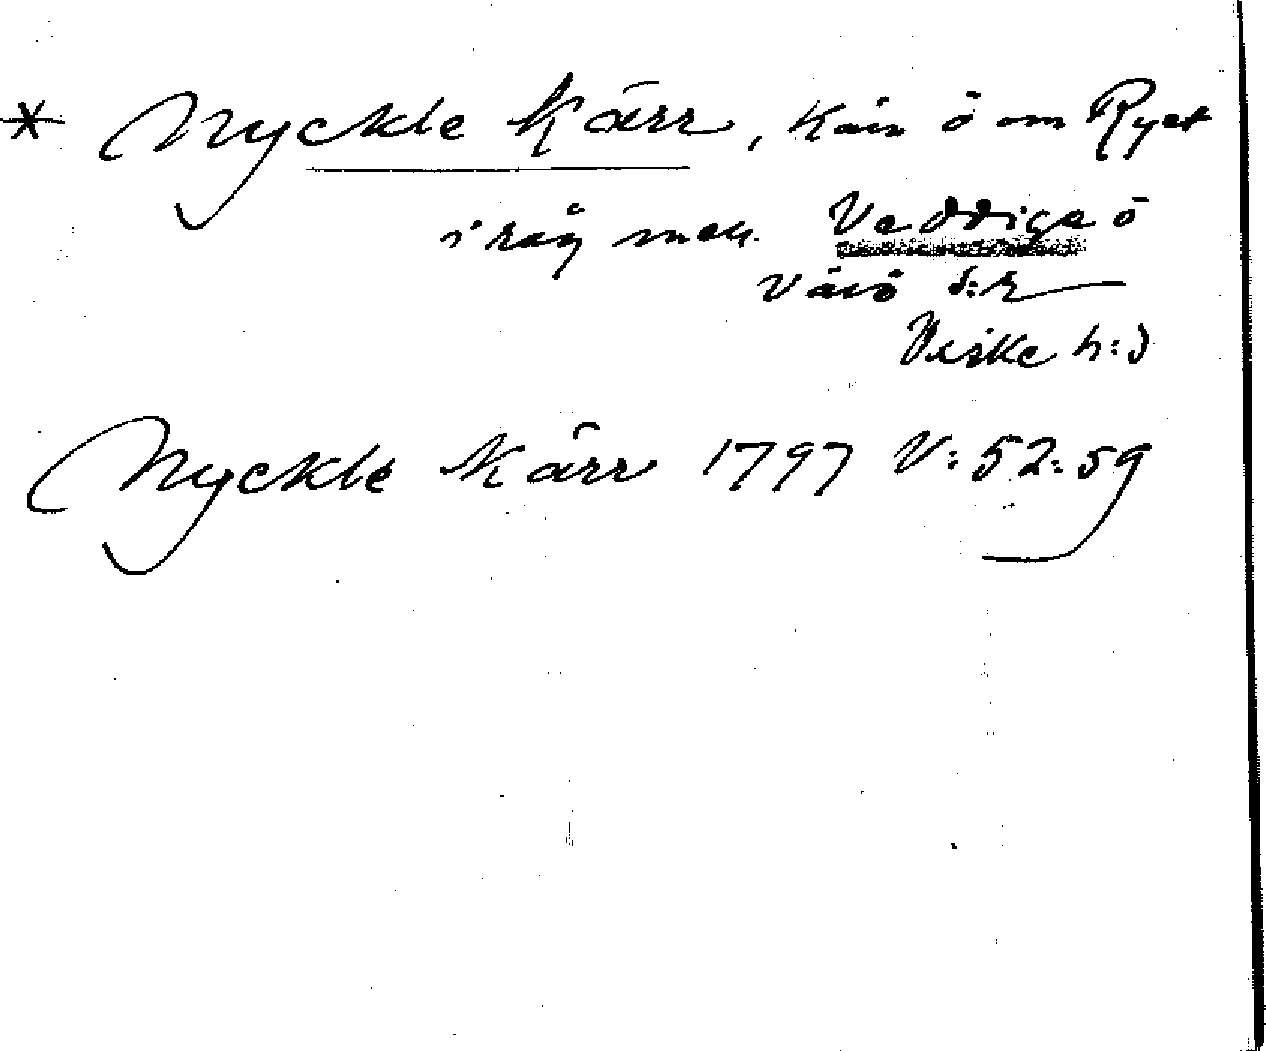 * Nyckle Kärr, Kärr ö om Ryet
i råg mell. Veddige ö
Värö s:r
Viske h:d
Nyckle Kärr 1797 V:52:59